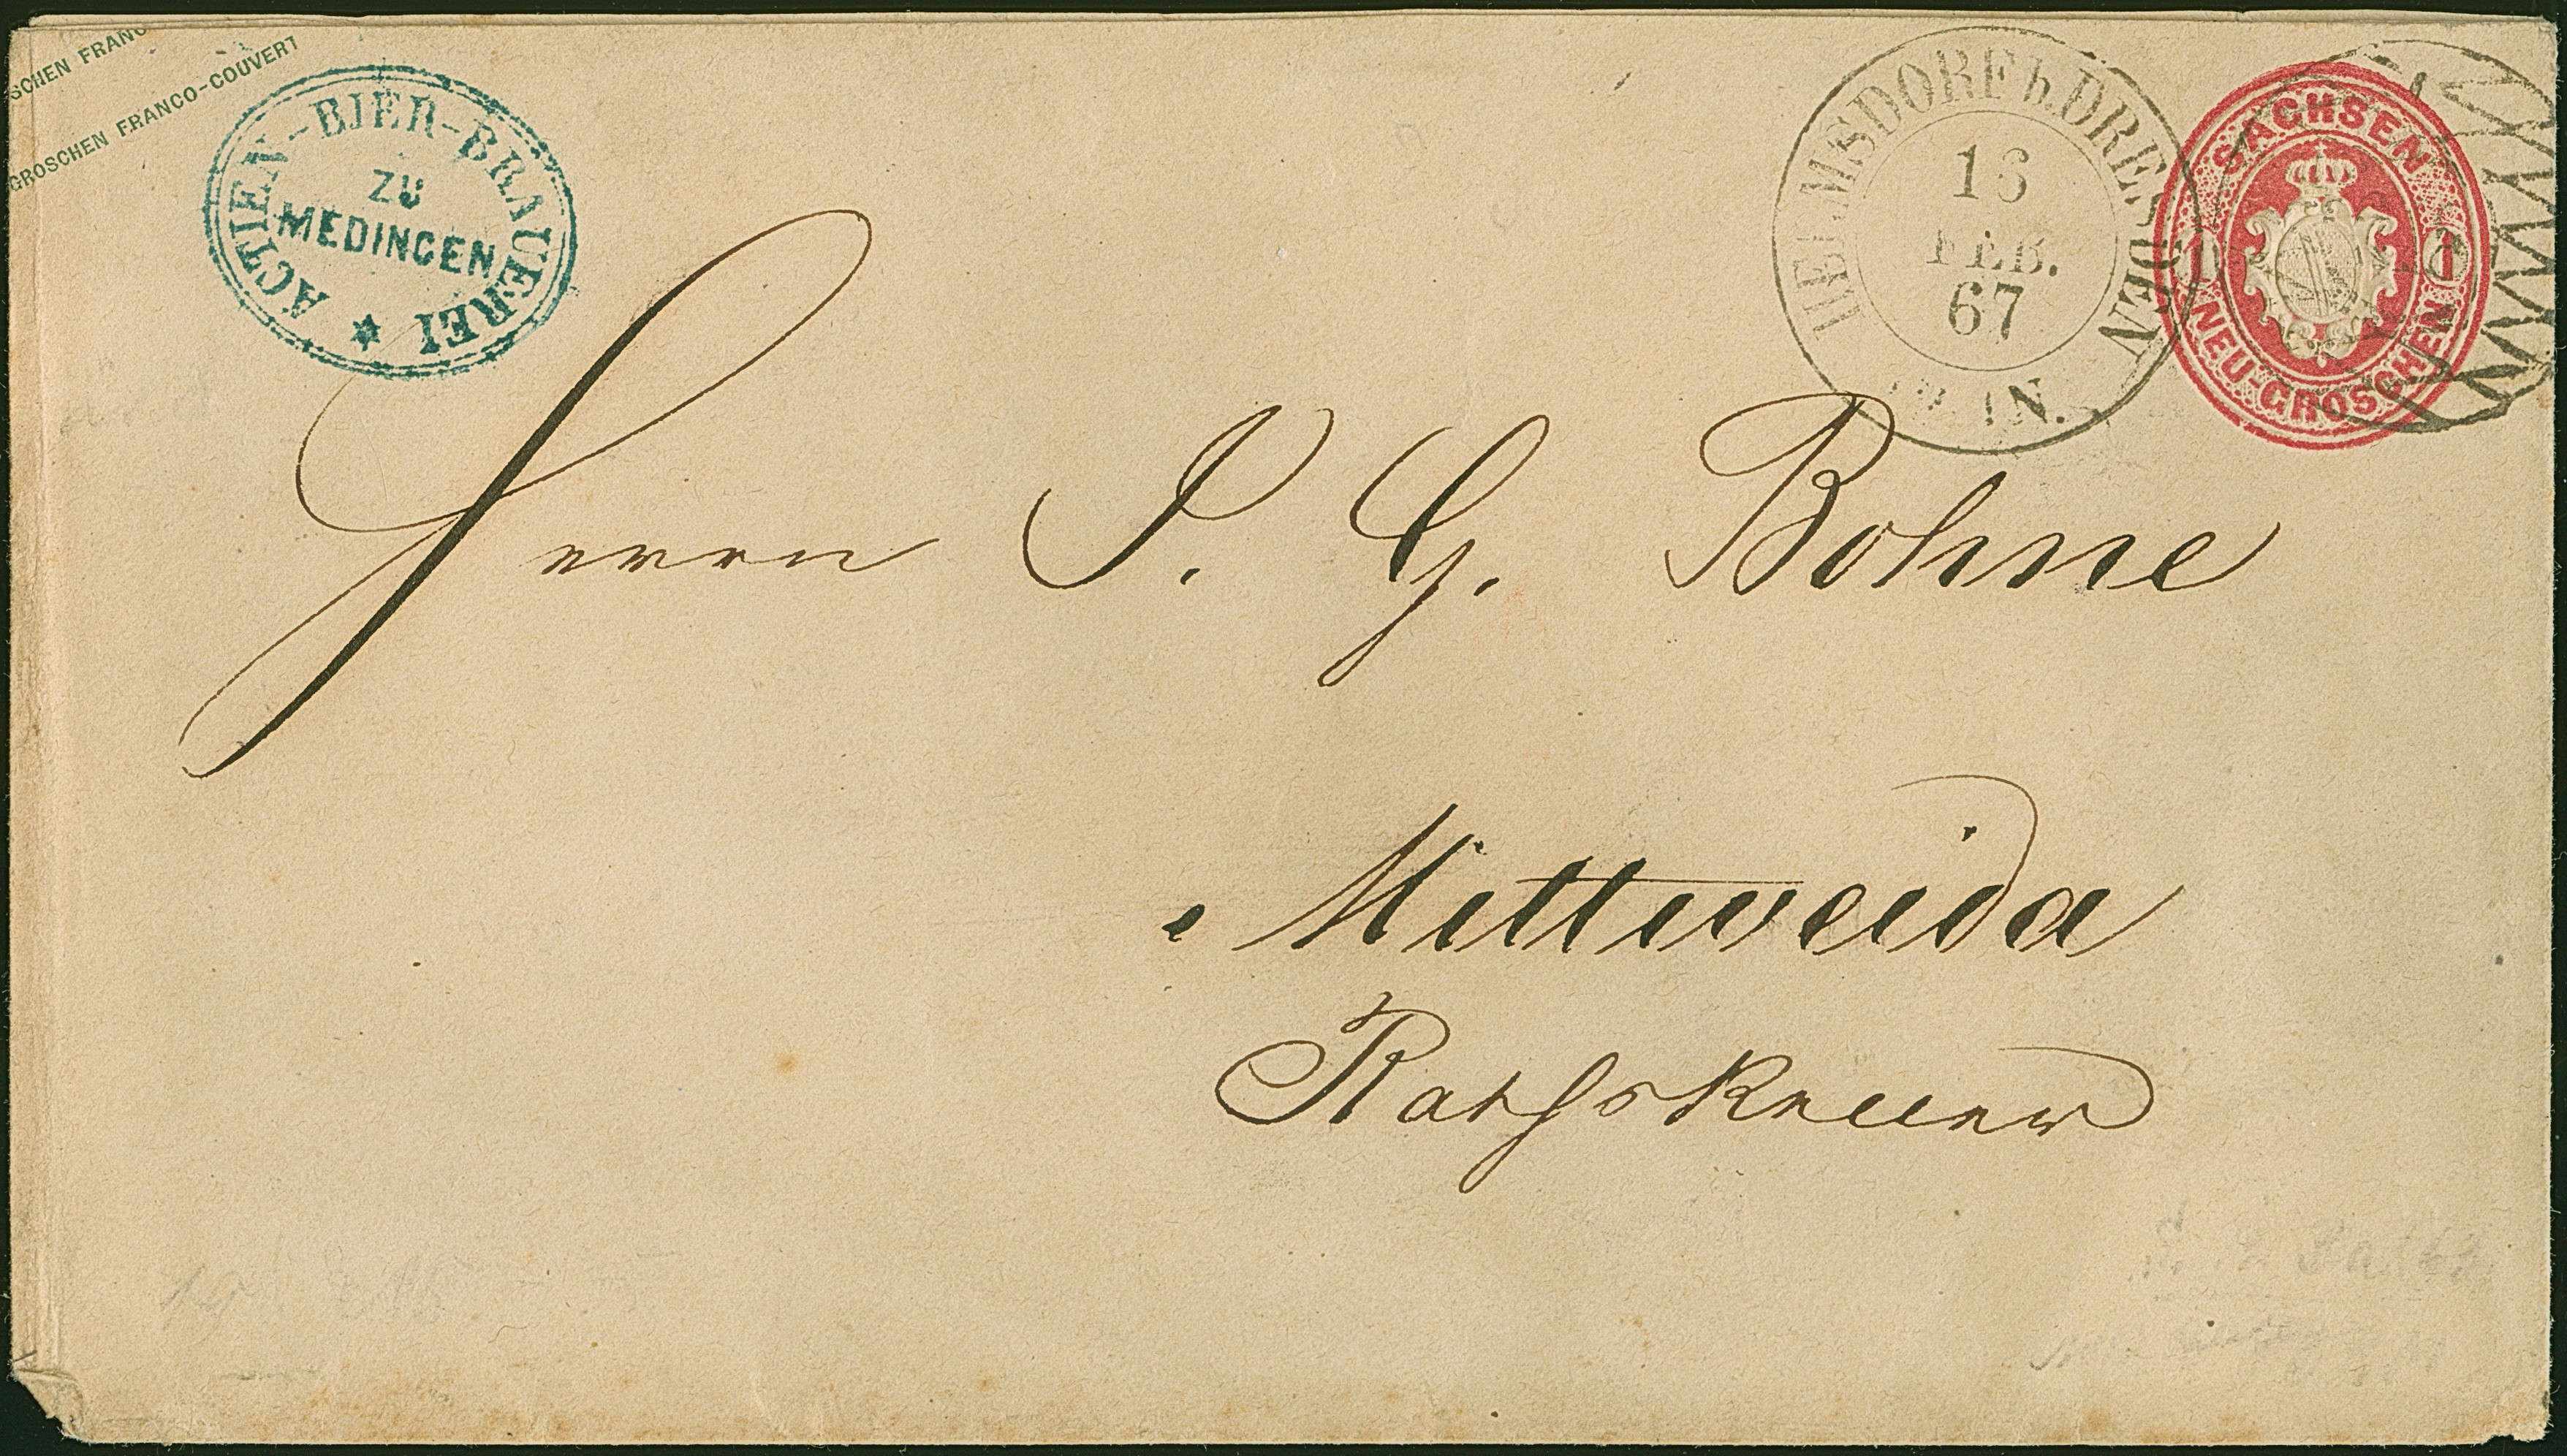 SCHEN FRANC
GROSCHEN FRANCO-COUVERT
ACTIEN-BIER-BRAUEREI
ZU
MEDINGEN
HERMSDORF b. DRESDEN
16
FEB.
67
N.
SACHSEN
1 1
NEU-GROSCHEN
Herrn J. G. Bohne
Mittweida
Rathskeller